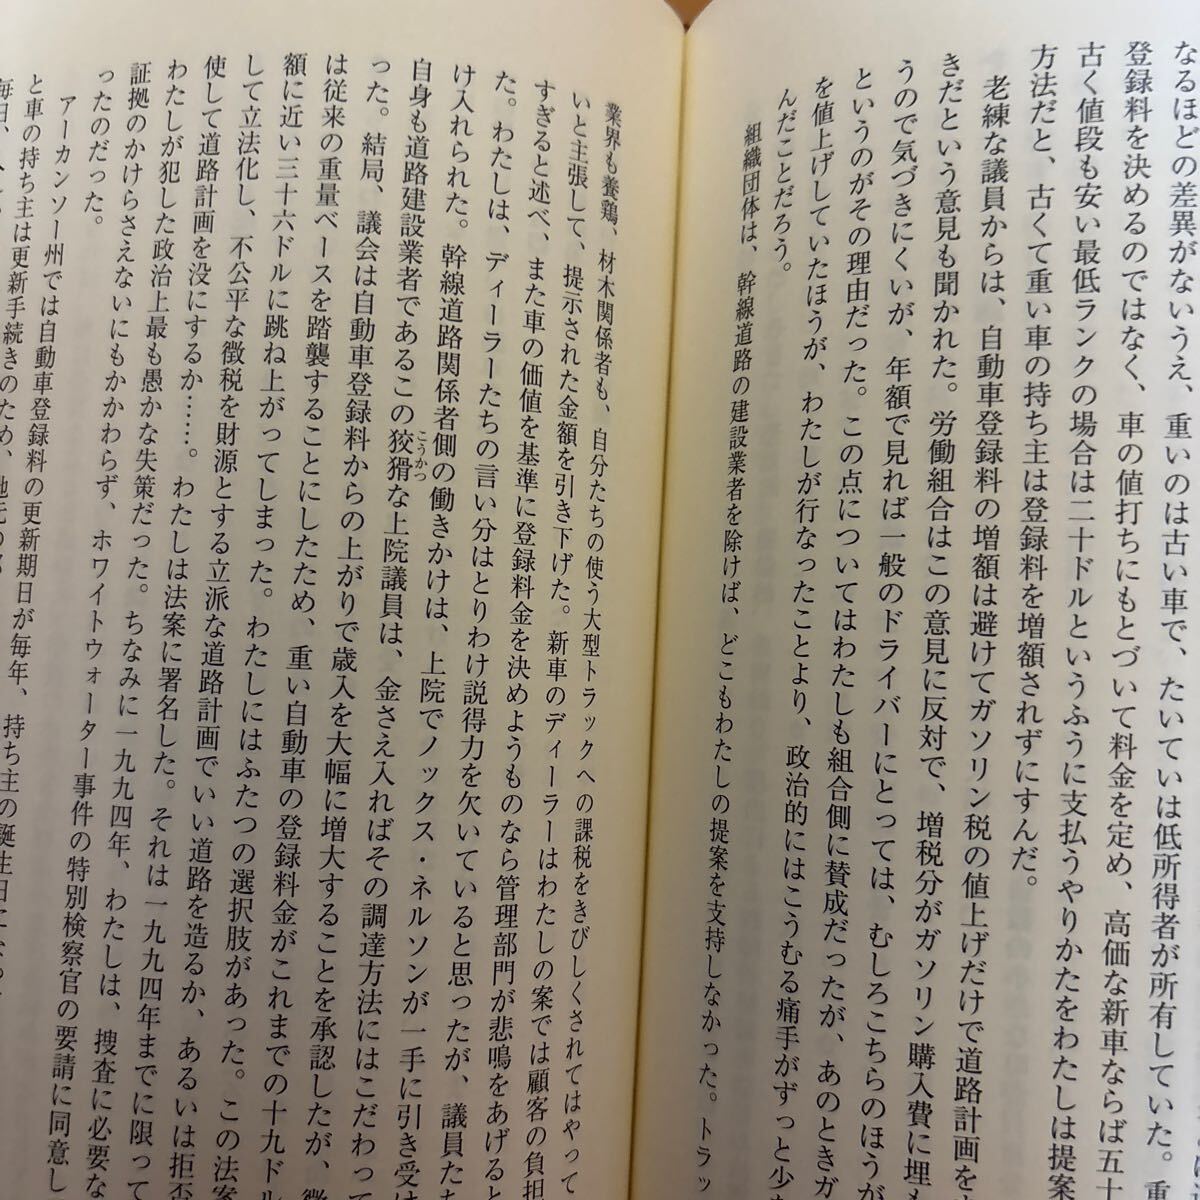 なるほどの差異がないうえ、重いのは古い車で、たいていは低所得者が所有していた。重
登録料を決めるのではなく、車の値打ちにもとづいて料金を定め、高価な新車ならば五十
古く値段も安い最低ランクの場合は二十ドルというふうに支払うやりかたをわたしは提案
方法だと、古くて重い車の持ち主は登録料を増額されずにすんだ。
老練な議員からは、自動車登録料の増額は避けてガソリン税の値上げだけで道路計画を
きだという意見も聞かれた。労働組合はこの意見に反対で、増税分がガソリン購入費に埋も
うので気づきにくいが、年額で見れば一般のドライバーにとっては、むしろこちらのほうが
というのがその理由だった。この点についてはわたしも組合側に賛成だったが、あのときガ
を値上げしていたほうが、わたしが行なったことより、政治的にはこうむる痛手がずっと少
んだことだろう。
組織団体は、幹線道路の建設業者を除けば、どこもわたしの提案を支持しなかった。トラッ
業界も養鶏、材木関係者も、自分たちの使う大型トラックへの課税をきびしくされてはやって
いと主張して、提示された金額を引き下げた。新車のディーラーはわたしの案では顧客の負担
すぎると述べ、また車の価値を基準に登録料金を決めようものなら管理部門が悲鳴をあげると
た。わたしは、ディーラーたちの言い分はとりわけ説得力を欠いていると思ったが、議員たち
け入れられた。幹線道路関係者側の働きかけは、上院でノックス・ネルソンが一手に引き受け
自身も道路建設業者であるこの狡猾こうかつな上院議員は、金さえ入ればその調達方法にはこだわって
った。結局、議会は自動車登録料からの上がりで歳入を大幅に増大することを承認したが、徴
は従来の重量ベースを踏襲することにしたため、重い自動車の登録料金がこれまでの十九ドル
額に近い三十六ドルに跳ね上がってしまった。わたしにはふたつの選択肢があった。この法案
して立法化し、不公平な徴税を財源とする立派な道路計画でいい道路を造るか、あるいは拒否
使して道路計画を没にするか……。わたしは法案に署名した。それは一九九四年までに限って
わたしが犯した政治上最も愚かな失策だった。ちなみに一九九四年、わたしは、捜査に必要な
証拠のかけらさえないにもかかわらず、ホワイトウォーター事件の特別検察官の要請に同意し
ったのだった。
アーカンソー州では自動車登録料の更新期日が毎年、持ち主の誕生日に
と車の持ち主は更新手続きのため、地元の
毎日、